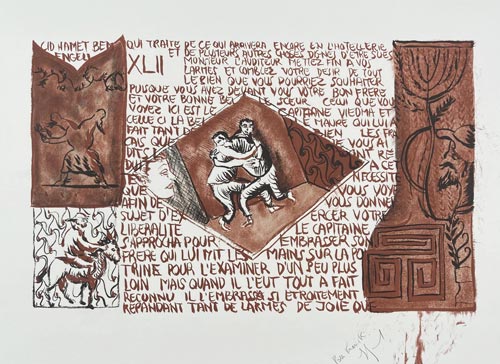 CID HAMET BEN
ENGELI
QUI TRAITE DE CE QUI ARRIVERA ENCORE EN L'HOTELLERIE
ET DE PLUSIEURS AUTRES CHOSES DIGNES D'ETRE SUES
XLII
MONSIEUR L'AUDITEUR METTEZ FIN A VOS
LARMES, ET COMBLEZ VOTRE DESIR DE TOUT
LE BIEN QUE VOUS POURRIEZ SOUHAITER
PUISQUE VOUS AVEZ DEVANT VOUS VOTRE BON FRERE
ET VOTRE BONNE BELLE SOEUR CELUI QUE VOUS
VOYEZ ICI EST LE CAPITAINE VIEDMA ET
CELLE CI LA MAURE QUI LUI A
FAIT TANT DE BIEN LES FRAN
CAIS QUE VOUS AI
DITS
A CETTE
NECESSITE
QUE VOUS VOYEZ
AFIN DE VOUS DONNER
SUJET D'EXERCER VOTRE
LIBERALITE LE CAPITAINE
S'APPROCHA POUR EMBRASSER SON
FRERE QUI LUI MIT LES MAINS SUR LA POI
TRINE POUR L'EXAMINER D'UN PEU PLUS
LOIN MAIS QUAND IL L'EUT TOUT A FAIT
RECONNU IL L'EMBRASSA SI ETROITEMENT
REPANDANT TANT DE LARMES DE JOIE QUE